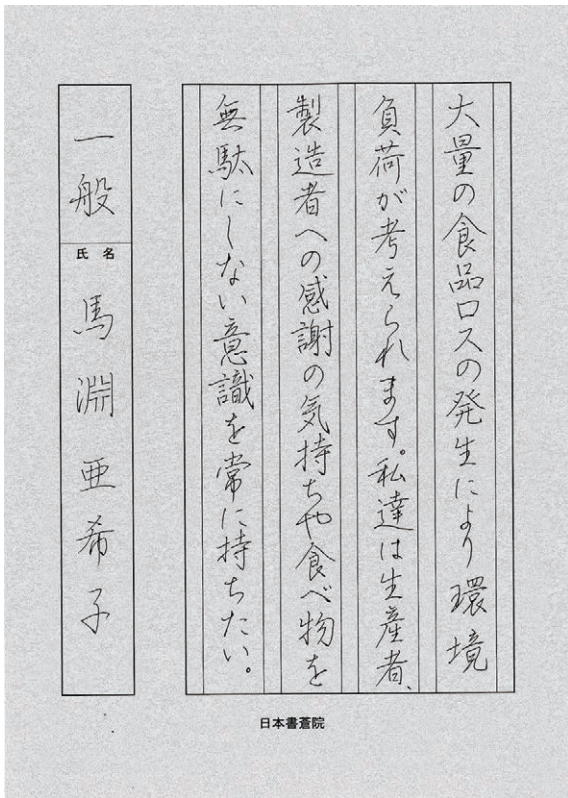 大量の食品ロスの発生により環境
負荷が考えられます。私達は生産者、
製造者への感謝の気持ちや食べ物を
無駄にしない意識を常に持ちたい。
一般
氏名
馬淵亜希子
日本書蒼院